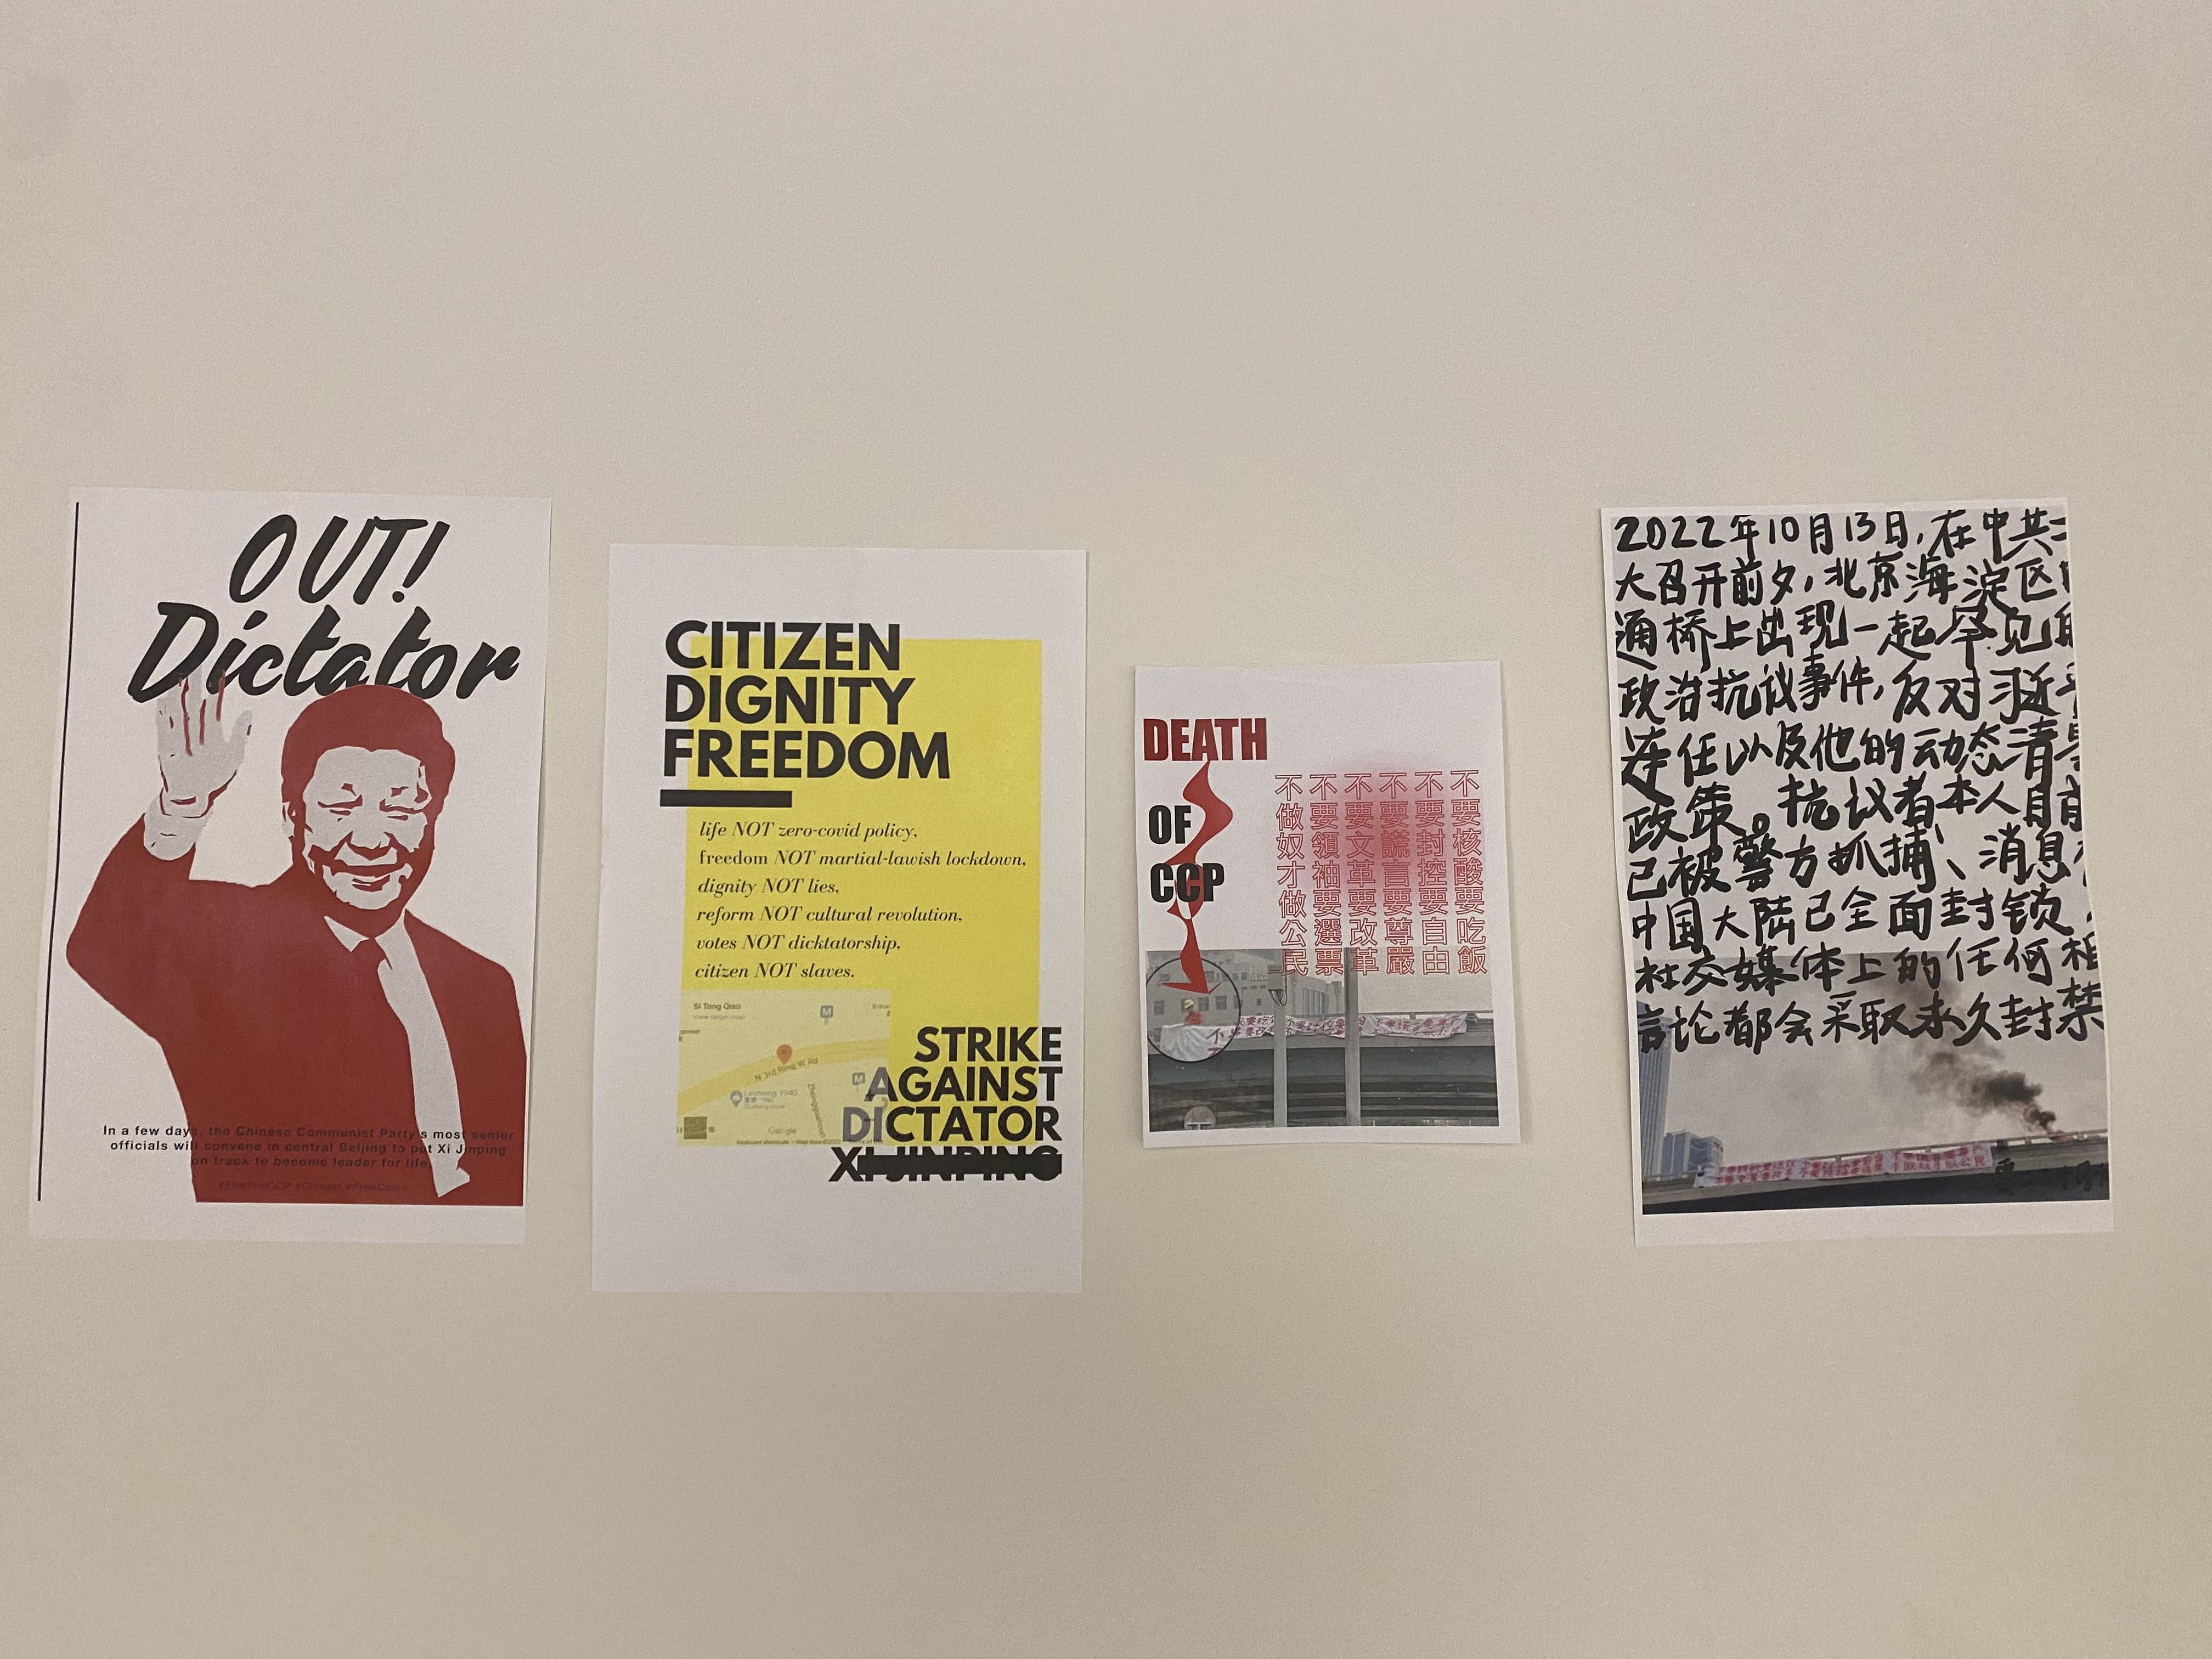 OUT!
Dictator
In a few days, the Chinese Communist Party's most senior
officials will convene in central Beijing to put Xi Jinping
on track to become leader for life.
#EndTheCCP #Chinazi #FreeChina
CITIZEN
DIGNITY
FREEDOM
life NOT zero-covid policy,
freedom NOT martial-lawish lockdown,
dignity NOT lies,
reform NOT cultural revolution,
votes NOT dicktatorship,
citizen NOT slaves.
Si Tong Qiao
View larger map
N 3rd Ring W Rd
Google
STRIKE
AGAINST
DICTATOR
XI JINPING
DEATH
OF
CCP
不要核酸要吃飯
不要封控要自由
不要謊言要尊嚴
不要文革要改革
不要領袖要選票
不做奴才做公民
2022年10月13日,在中共
大召开前夕,北京海淀区
通桥上出现一起罕见
政治抗议事件,反对习近
连任以及他的动态清
政策。抗议者本人目前
已被警方抓捕、消息
中国大陆已全面封锁,
社交媒体上的任何相
言论都会采取永久封禁